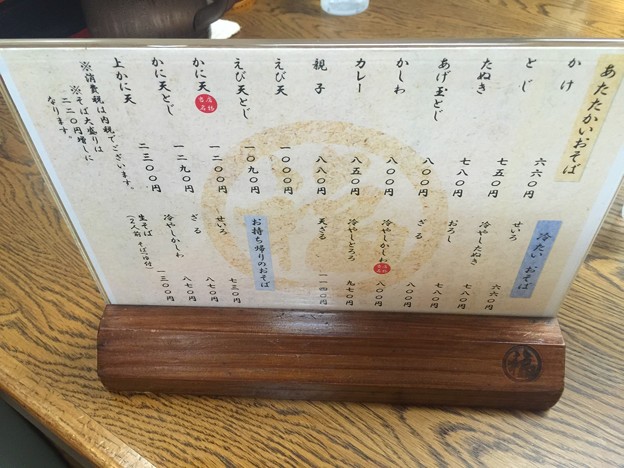 あたたかいおそば
かけ 六六〇円
とじ 七五〇円
たぬき 七八〇円
あげ玉とじ 八〇〇円
かしわ 八〇〇円
カレー 八五〇円
親子 八八〇円
えび天 一〇〇〇円
えび天とじ 一〇九〇円
かに天 一二〇〇円
かに天とじ 一二九〇円
上かに天 二三〇〇円
※消費税は内税でございます。
※そば大盛りは
二二〇円増しに
なります。
冷たいおそば
せいろ 六六〇円
冷やしたぬき 七八〇円
おろし 七八〇円
ざる 八〇〇円
冷やしかしわ 八〇〇円
冷やしとろろ 九七〇円
天ざる 一一四〇円
お持ち帰りのおそば
せいろ 七三〇円
ざる 八七〇円
冷やしかしわ 八七〇円
生そば 一三〇〇円
(2人前 そばつゆ付)
福